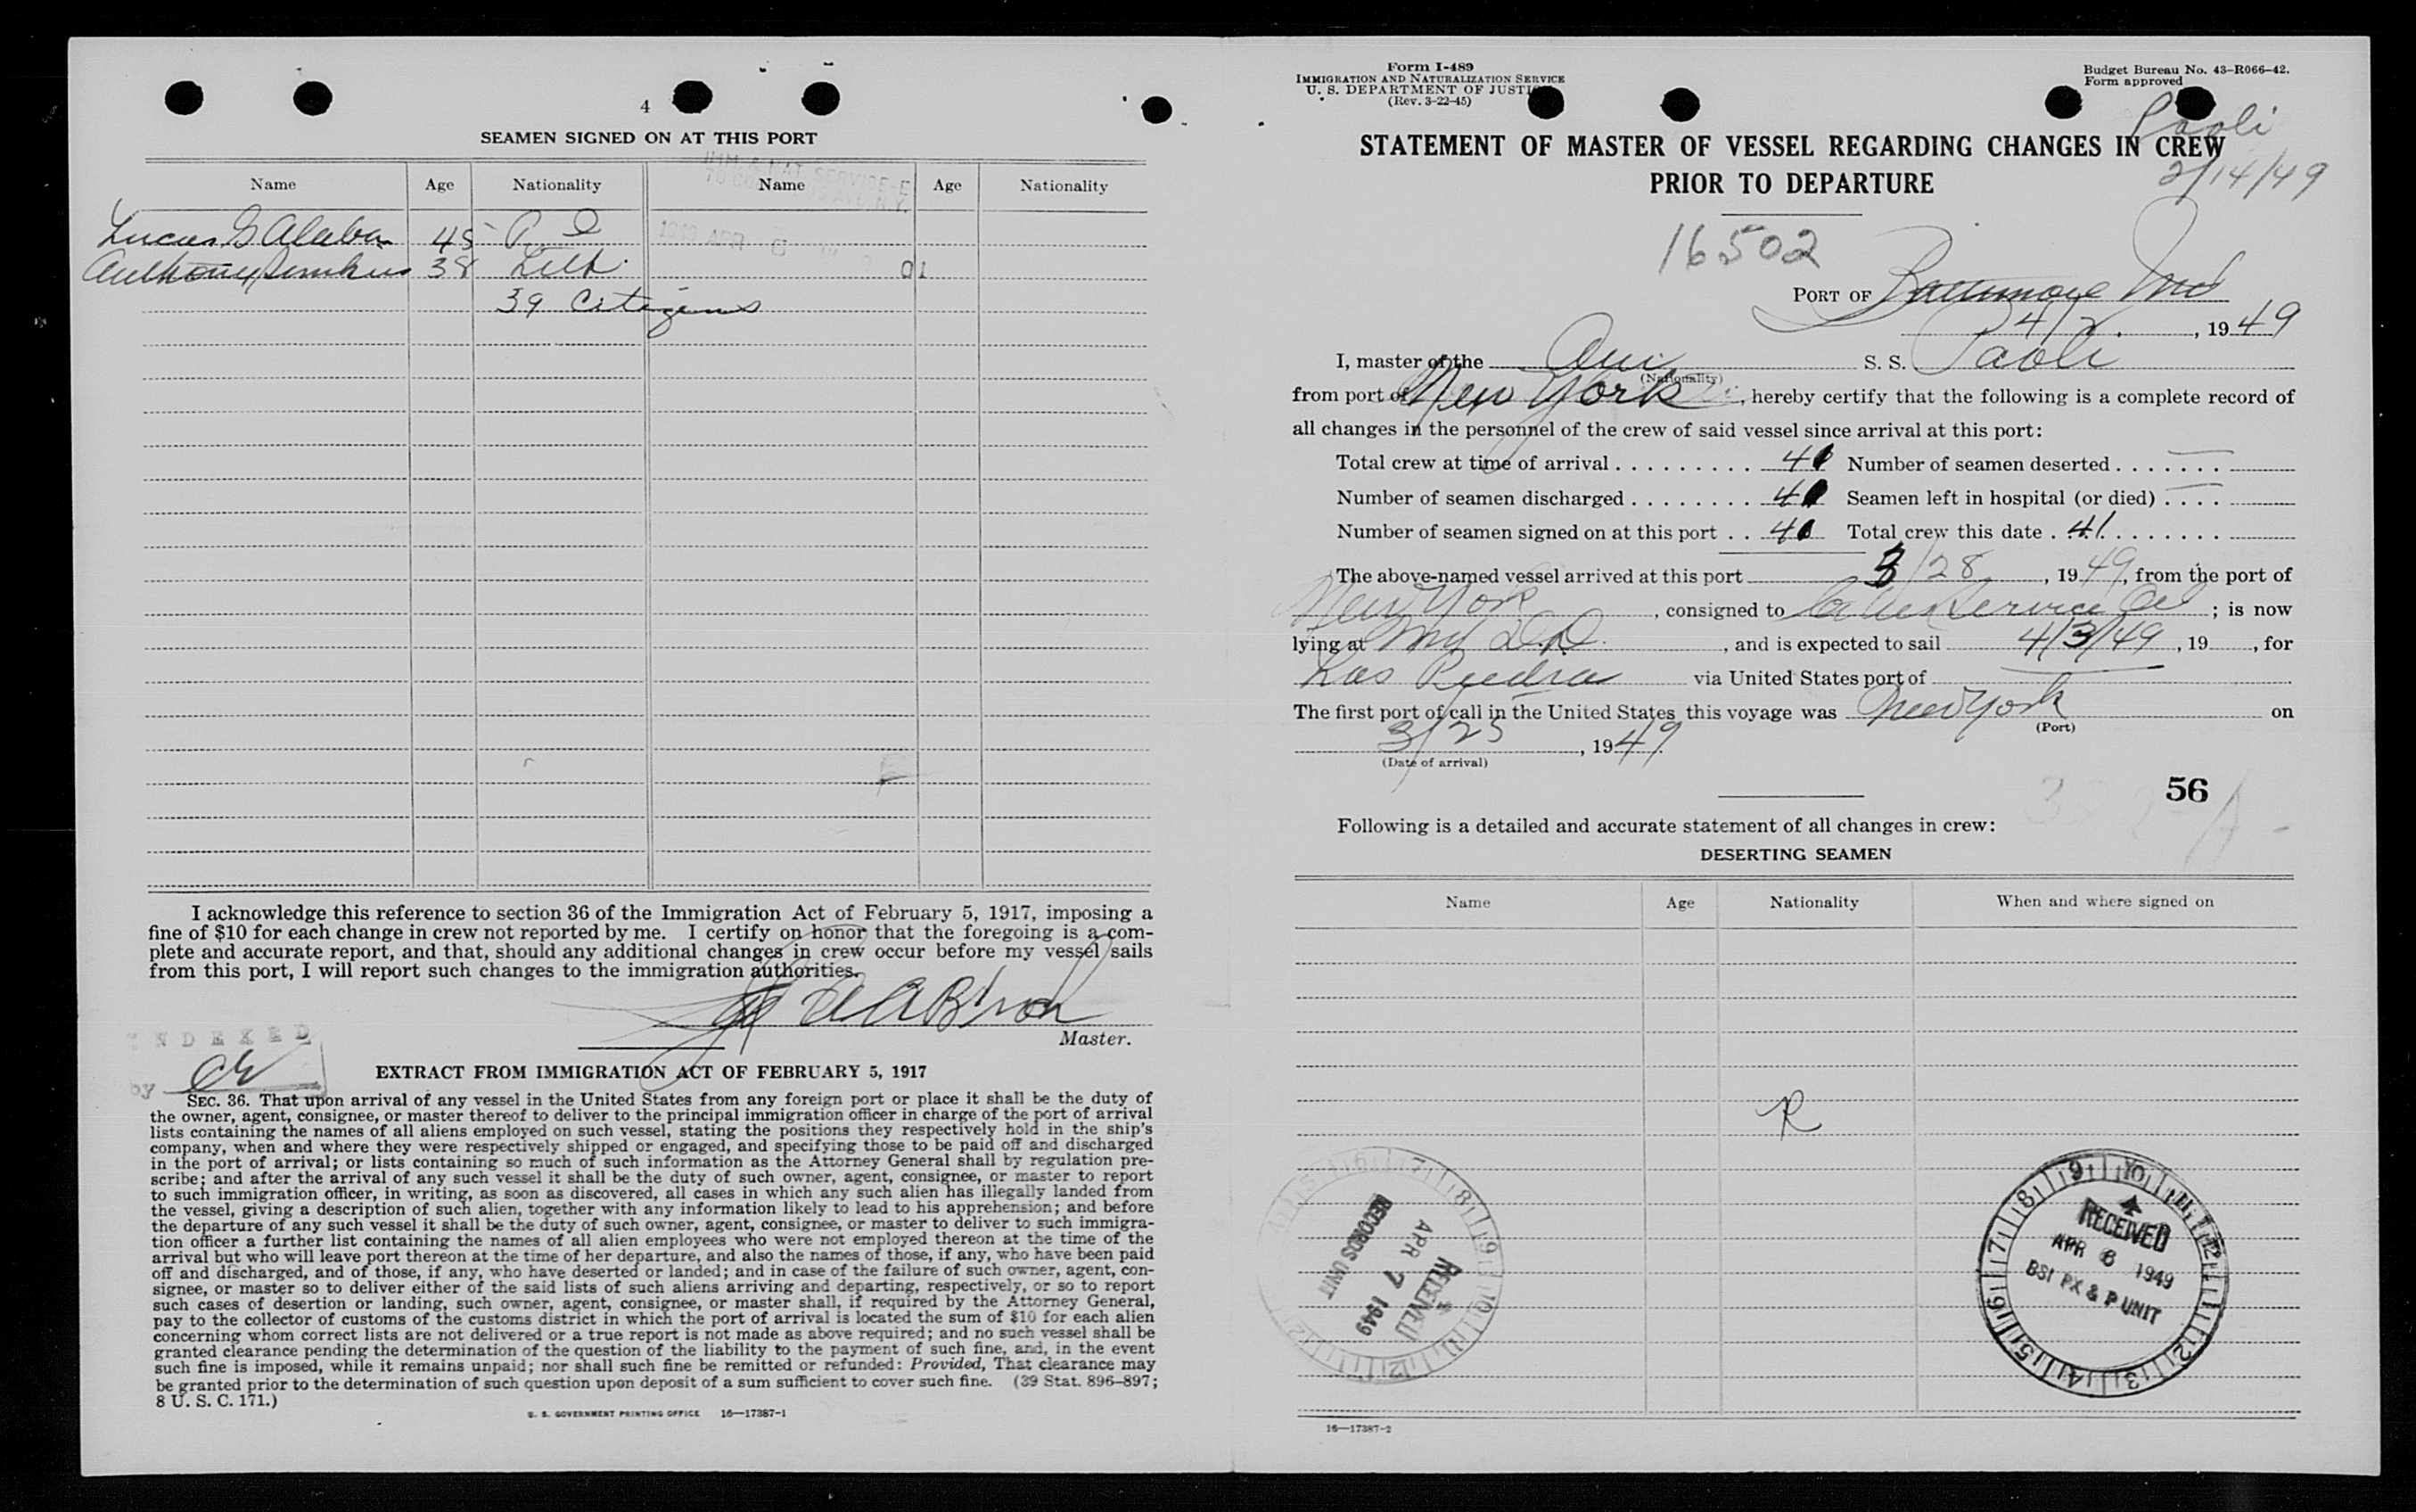 4
SEAMEN SIGNED ON AT THIS PORT
Name Age Nationality Name Age Nationality
Lucas G 45 P. I
Anthony 38 Lith.
39 Citizens
I acknowledge this reference to section 36 of the Immigration Act of February 5, 1917, imposing a
fine of $10 for each change in crew not reported by me. I certify on honor that the foregoing is a com-
plete and accurate report, and that, should any additional changes in crew occur before my vessel sails
from this port, I will report such changes to the immigration authorities.
Master.
INDEXED
by
EXTRACT FROM IMMIGRATION ACT OF FEBRUARY 5, 1917
SEC. 36. That upon arrival of any vessel in the United States from any foreign port or place it shall be the duty of
the owner, agent, consignee, or master thereof to deliver to the principal immigration officer in charge of the port of arrival
lists containing the names of all aliens employed on such vessel, stating the positions they respectively hold in the ship's
company, when and where they were respectively shipped or engaged, and specifying those to be paid off and discharged
in the port of arrival; or lists containing so much of such information as the Attorney General shall by regulation pre-
scribe; and after the arrival of any such vessel it shall be the duty of such owner, agent, consignee, or master to report
to such immigration officer, in writing, as soon as discovered, all cases in which any such alien has illegally landed from
the vessel, giving a description of such alien, together with any information likely to lead to his apprehension; and before
the departure of any such vessel it shall be the duty of such owner, agent, consignee, or master to deliver to such immigra-
tion officer a further list containing the names of all alien employees who were not employed thereon at the time of the
arrival but who will leave port thereon at the time of her departure, and also the names of those, if any, who have been paid
off and discharged, and of those, if any, who have deserted or landed; and in case of the failure of such owner, agent, con-
signee, or master so to deliver either of the said lists of such aliens arriving and departing, respectively, or so to report
such cases of desertion or landing, such owner, agent, consignee, or master shall, if required by the Attorney General,
pay to the collector of customs of the customs district in which the port of arrival is located the sum of $10 for each alien
concerning whom correct lists are not delivered or a true report is not made as above required; and no such vessel shall be
granted clearance pending the determination of the question of the liability to the payment of such fine, and, in the event
such fine is imposed, while it remains unpaid; nor shall such fine be remitted or refunded: Provided, That clearance may
be granted prior to the determination of such question upon deposit of a sum sufficient to cover such fine. (39 Stat. 896–897;
8 U. S. C. 171.)
U. S. GOVERNMENT PRINTING OFFICE 16—17387-1
Form I-489
IMMIGRATION AND NATURALIZATION SERVICE
U. S. DEPARTMENT OF JUSTICE
(Rev. 3-22-45)
Budget Bureau No. 43-R066-42.
Form approved
Paoli
2/14/49
STATEMENT OF MASTER OF VESSEL REGARDING CHANGES IN CREW
PRIOR TO DEPARTURE
16502
PORT OF Baltimore Md
4/2. , 1949
I, master of the Am. S. S. Paoli
(Nationality)
from port of New York, hereby certify that the following is a complete record of
all changes in the personnel of the crew of said vessel since arrival at this port:
Total crew at time of arrival Number of seamen deserted —
Number of seamen discharged Seamen left in hospital (or died) —
Number of seamen signed on at this port Total crew this date 41
The above-named vessel arrived at this port 3/28, 1949, from the port of
New York, consigned to Cities Service Oil; is now
lying at Md D.D., and is expected to sail 4/3/49, 19, for
Las Piedra via United States port of —
The first port of call in the United States this voyage was New York on
(Port)
3/25, 1949
(Date of arrival)
56
Following is a detailed and accurate statement of all changes in crew:
DESERTING SEAMEN
Name Age Nationality When and where signed on
R
RECEIVED
APR 7 1949
RECORDS UNIT
RECEIVED
APR 6 1949
BSI PX & P UNIT
16—17387-2